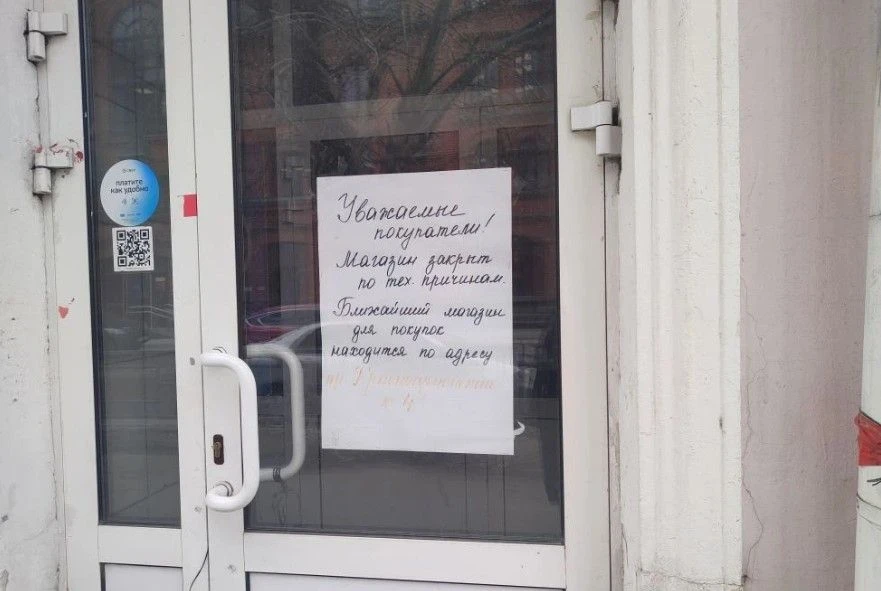 платите
как удобно
Уважаемые
покупатели!
Магазин закрыт
по тех. причинам.
Ближайший магазин
для покупок
находится по адресу
пр
4